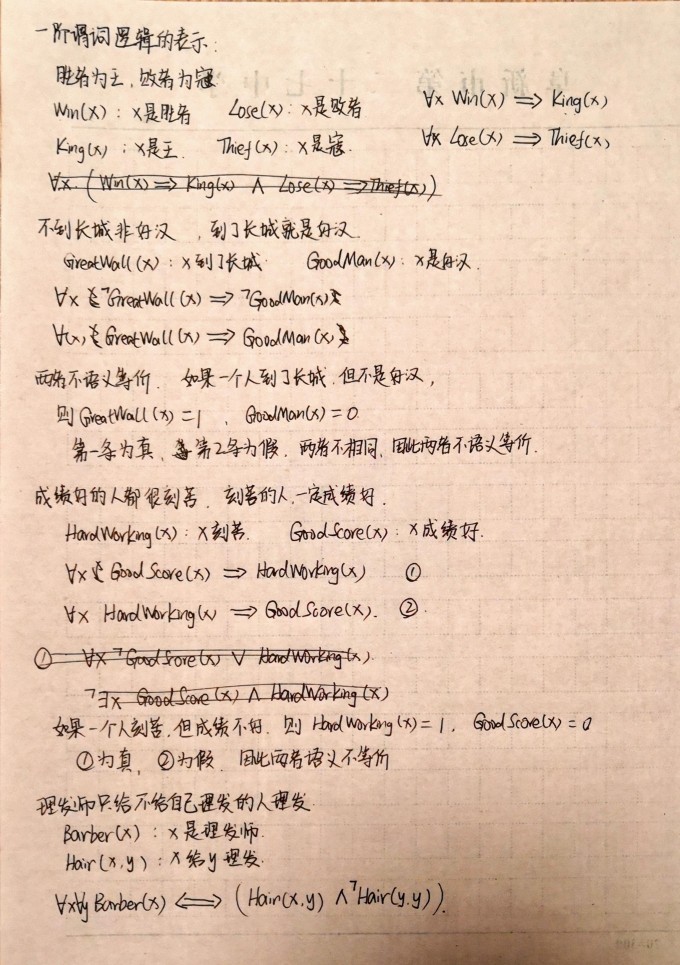 一阶谓词逻辑的表示:
胜者为王,败者为寇
Win(x): x是胜者 Lose(x): x是败者 ∀x Win(x) ⟹ King(x)
King(x): x是王. Thief(x): x是寇. ∀x Lose(x) ⟹ Thief(x)
∀x. (Win(x) ⟹ King(x) ∧ Lose(x) ⟹ Thief(x))
不到长城非好汉 , 到了长城就是好汉.
GreatWall(x): x到了长城. GoodMan(x): x是好汉.
∀x ¬GreatWall(x) ⟹ ¬GoodMan(x)
∀(x), GreatWall(x) ⟹ GoodMan(x)
两者不语义等价. 如果一个人到了长城.但不是好汉,
则GreatWall(x)=1 , GoodMan(x)=0.
第一条为真, 第2条为假. 两者不相同, 因此两者不语义等价.
成绩好的人都很刻苦. 刻苦的人,一定成绩好.
HardWorking(x): x刻苦. GoodScore(x): x成绩好.
∀x GoodScore(x) ⟹ HardWorking(x) ①
∀x HardWorking(x ⟹ GoodScore(x). ②.
① ∀x ¬GoodScore(x) ∨ HardWorking(x).
¬∃x GoodScore(x) ∧ HardWorking(x)
如果一个人刻苦,但成绩不好. 则 HardWorking(x)=1, GoodScore(x)=0
①为真, ②为假. 因此两者语义不等价
理发师只给不给自己理发的人理发.
Barber(x): x是理发师.
Hair(x,y): x给y理发.
∀x∀y Barber(x) ⟺ (Hair(x,y) ∧ ¬Hair(y,y)).